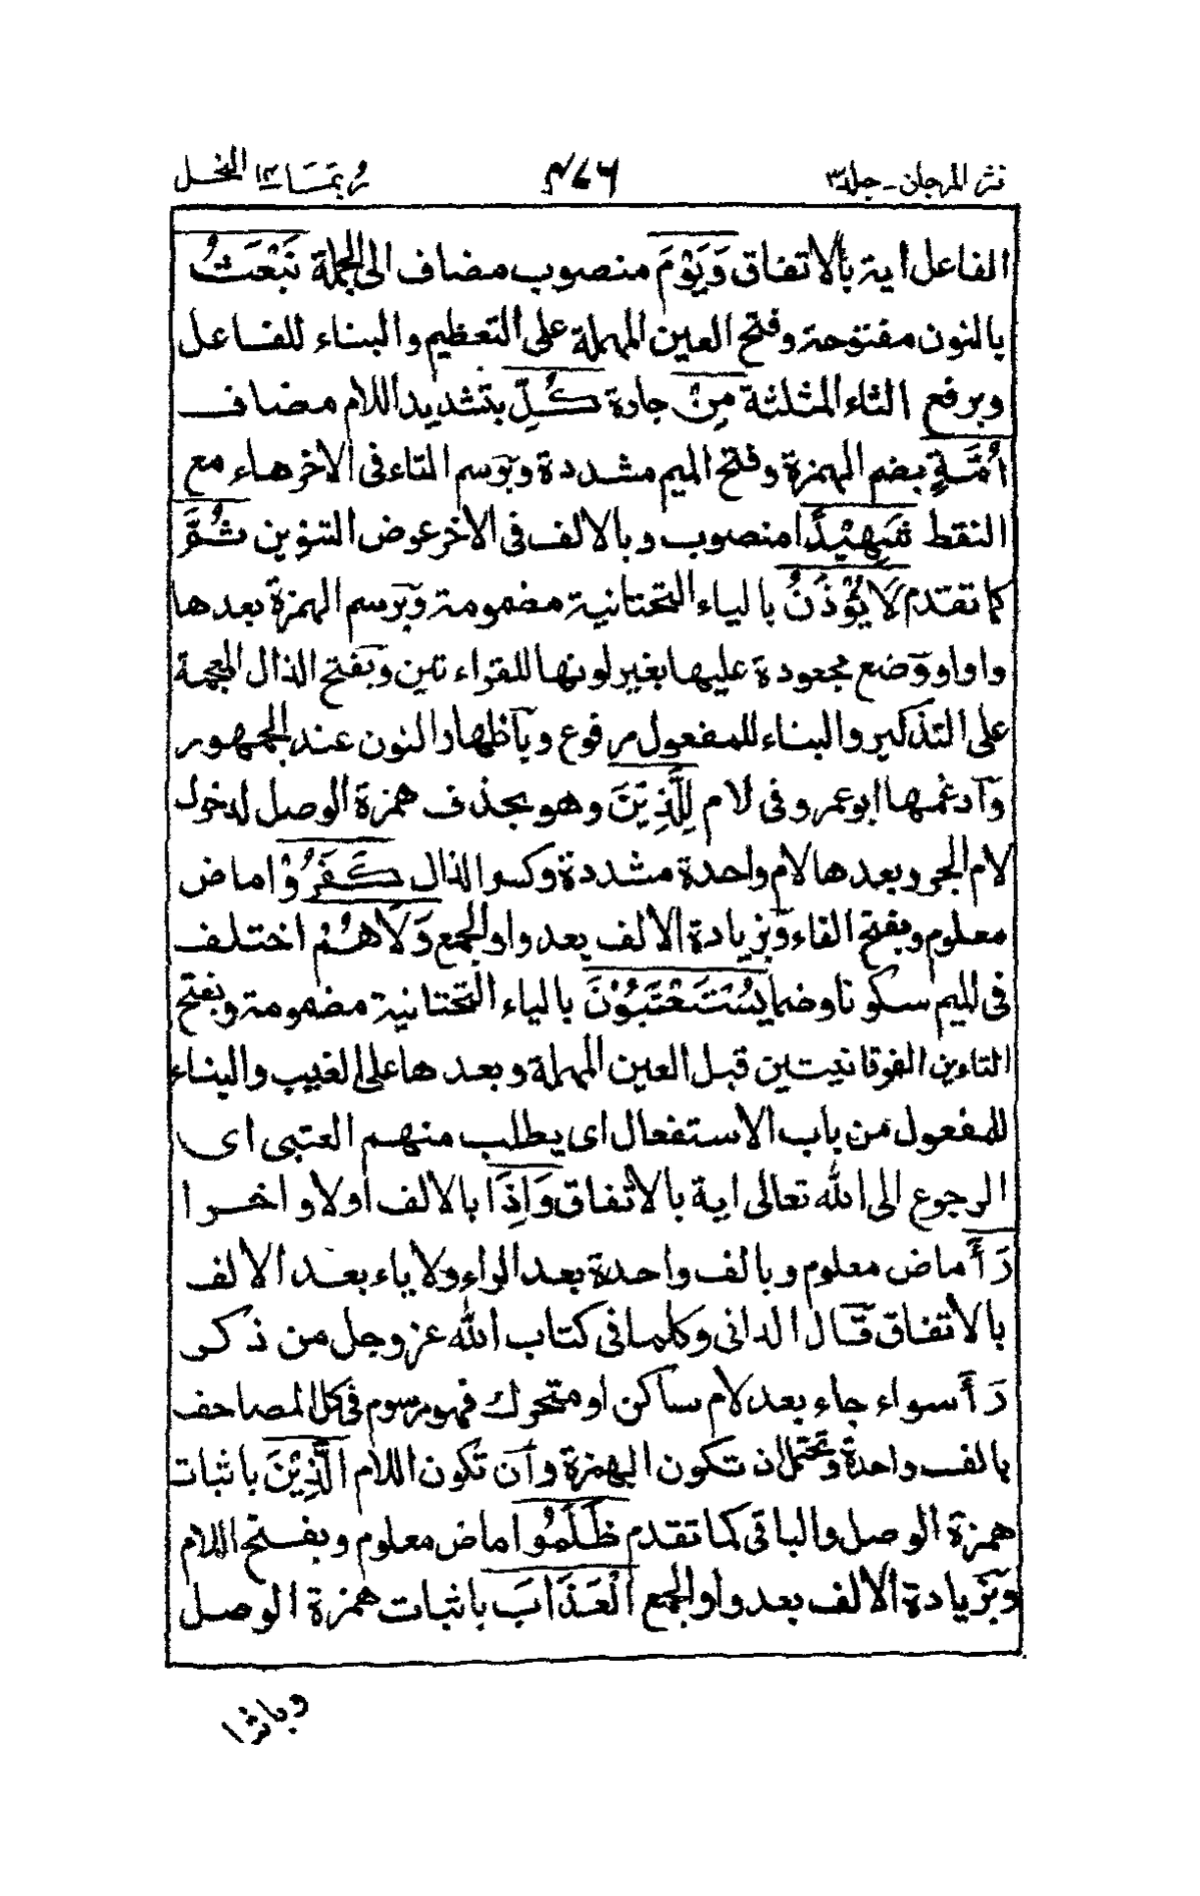 نثر المرجان - جلد ۳ ۴۷۶ ربما ۱۴ النحل
الفاعل اية بالاتفاق وَيَوْمَ منصوب مضاف الى الجملة نَبْعَثُ
بالنون مفتوحة وفتح العين المهملة على التعظيم والبناء للفاعل
وبرفع الثاء المثلثة مِنْ جارة كُلِّ بتشديد اللام مضاف
أُمَّةٍ بضم الهمزة وفتح الميم مشددة وبرسم التاء فى الاخرهاء مع
النقط شَهِيْدًا منصوب وبالالف فى الاخر عوض التنوين ثُمَّ
كما تقدم لَا يُؤْذَنُ بالياء التحتانية مضمومة وبرسم الهمزة بعدها
واوا ووضع مجعودة عليها بغير لونها للقراءتين وبفتح الذال المعجمة
على التذكير والبناء للمفعول مرفوع وبآظهار النون عند الجمهور
وآدغمها ابوعمرو فى لام لِلَّذِيْنَ وهو بحذف همزة الوصل لدخول
لام الجر وبعدها لام واحدة مشددة وكسر الذال كَفَرُوْا ماض
معلوم وبفتح الفاء وبزيادة الالف بعد واو الجمع وَلَا هُمْ اختلف
فى الميم سكونا وضما يُسْتَعْتَبُوْنَ بالياء التحتانية مضمومة وبفتح
التاءين الفوقانيتين قبل العين المهملة وبعدها على الغيب والبناء
للمفعول من باب الاستفعال اى يطلب منهم العتبى اى
الرجوع الى الله تعالى اية بالاتفاق وَاِذَا بالالف اولا واخرا
رَأَ ماض معلوم وبالف واحدة بعد الراء ولا ياء بعد الالف
بالاتفاق قال الدانى وكلما فى كتاب الله عز وجل من ذكر
رَأَ سواء جاء بعد لام ساكن او متحرك فهو مرسوم فى كل المصاحف
بالف واحدة وتحتمل ان تكون الهمزة وآن تكون اللام الَّذِيْنَ باثبات
همزة الوصل والباقى كما تقدم ظَلَمُوا ماض معلوم وبفتح اللام
وبزيادة الالف بعد واو الجمع الْعَذَابَ باثبات همزة الوصل